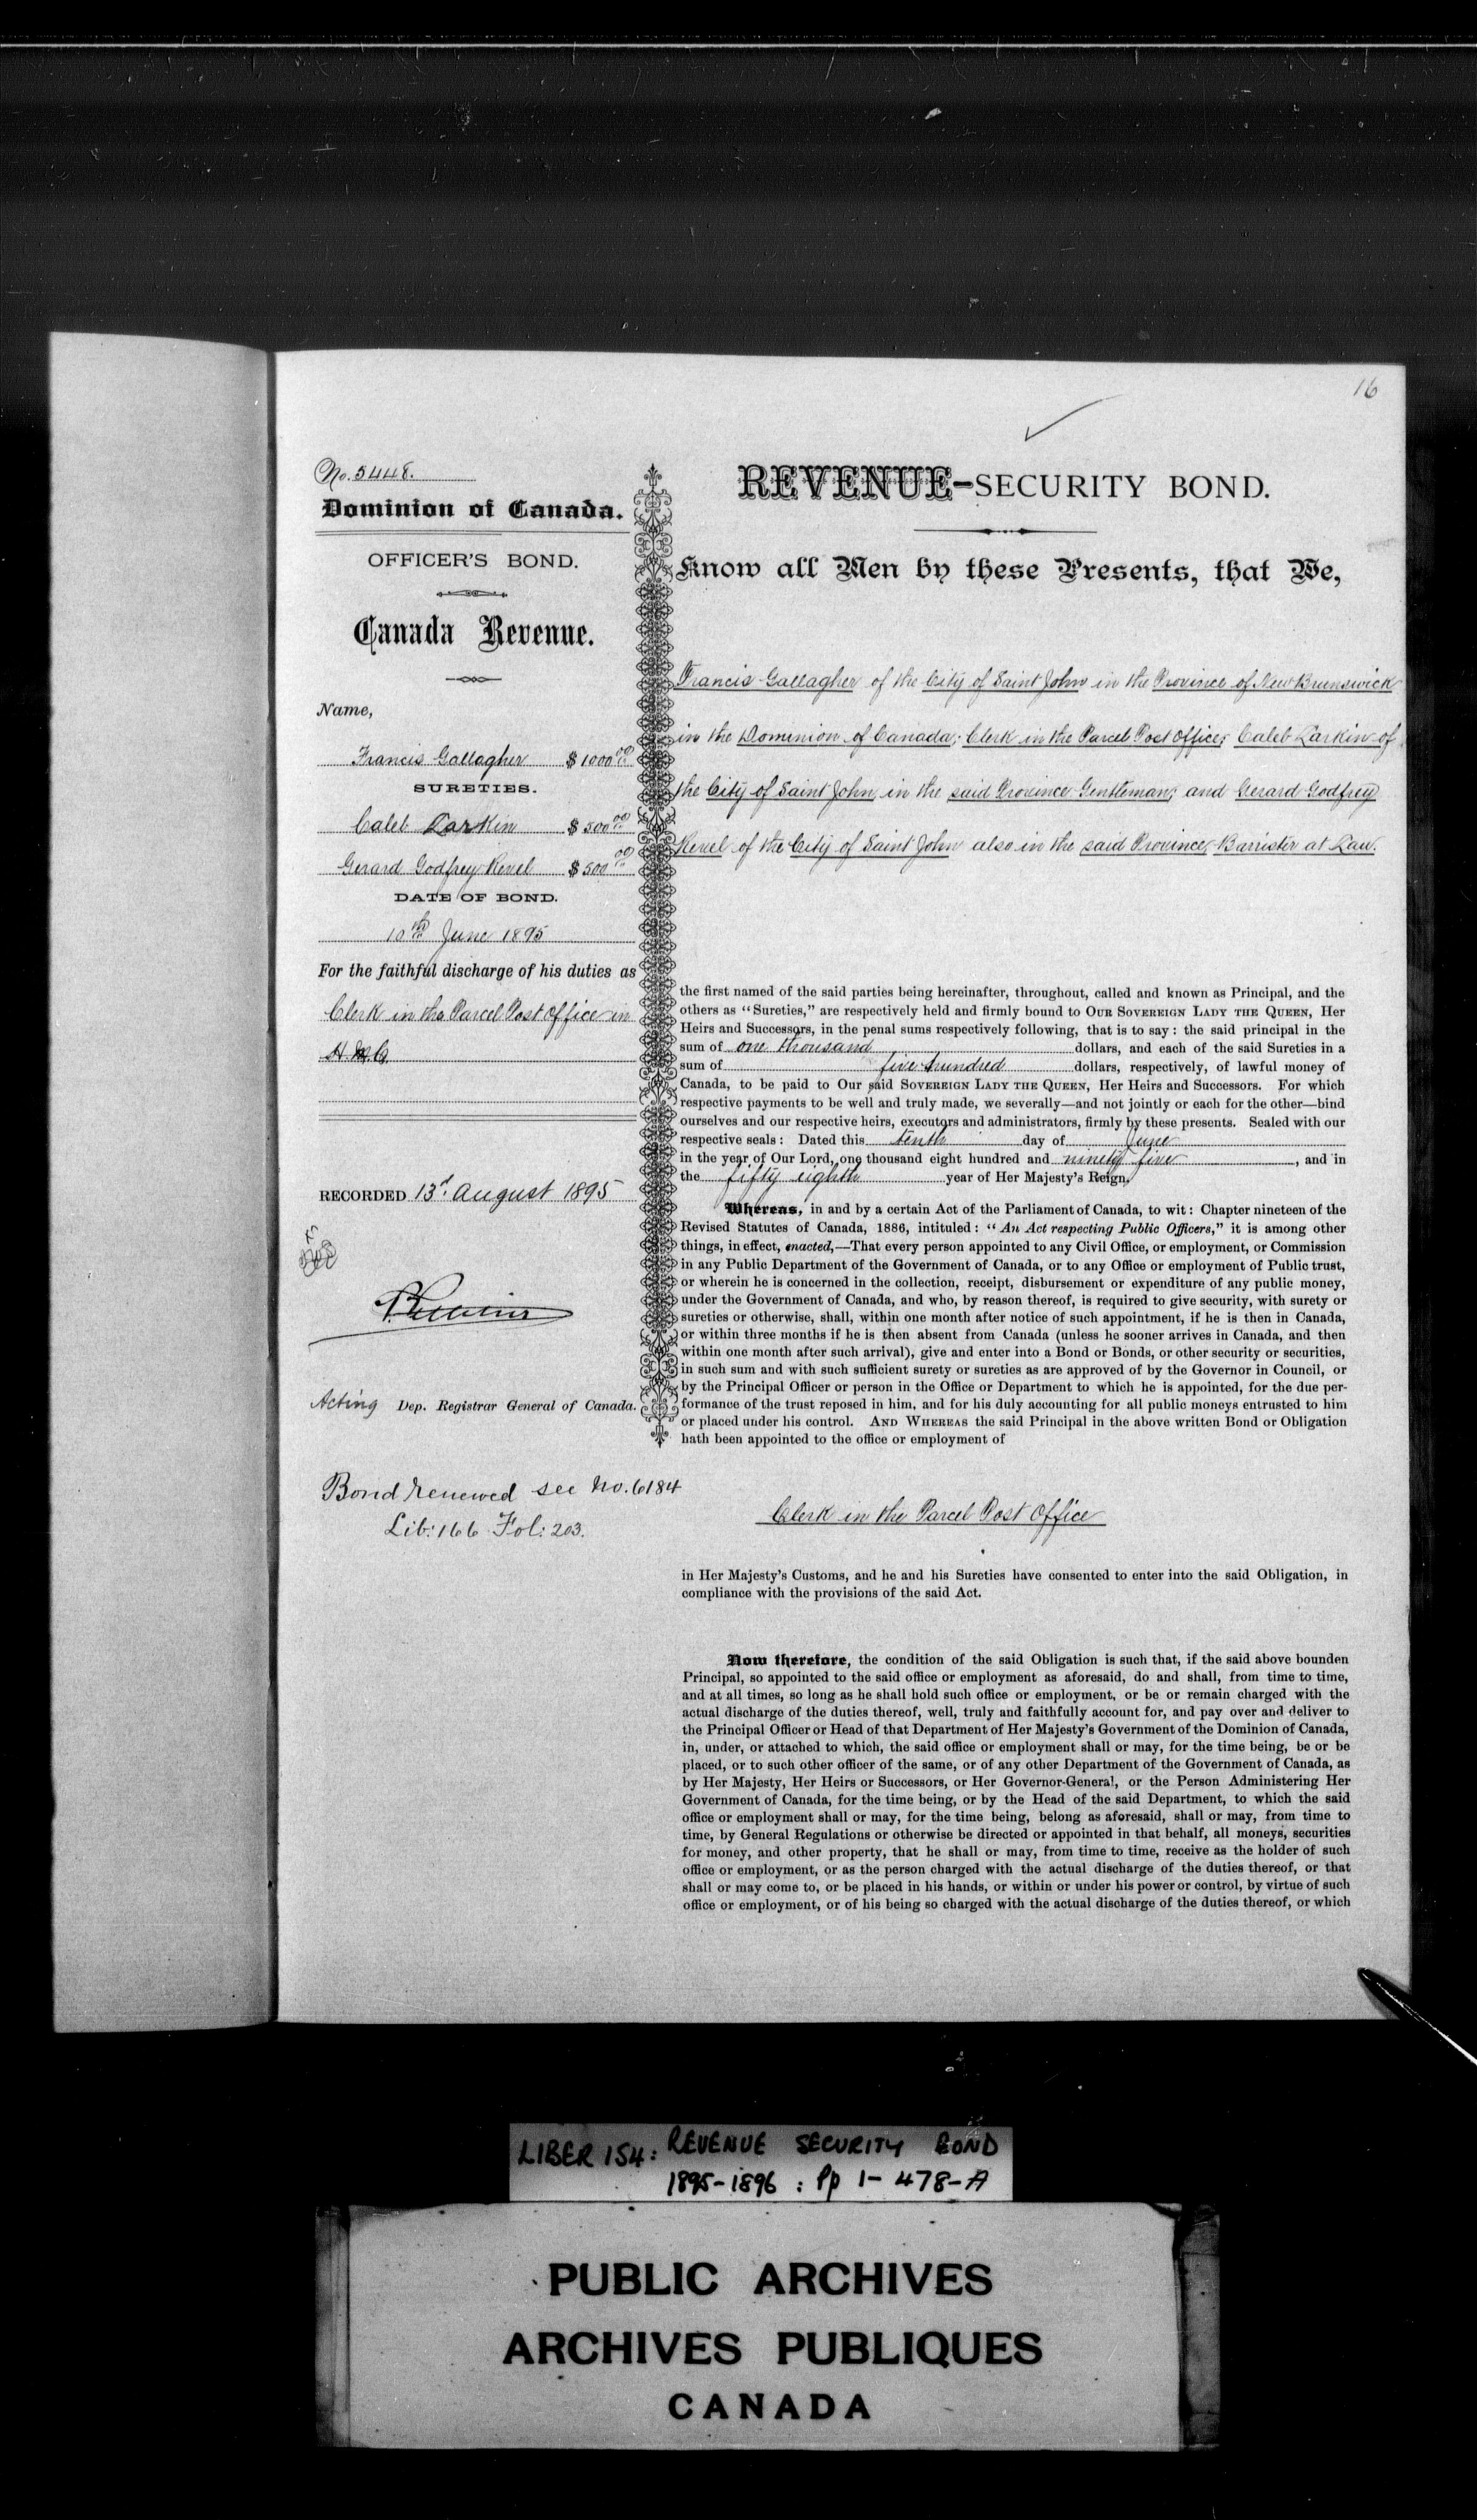 16
No. 5448.
Dominion of Canada.
OFFICER'S BOND.
Canada Revenue.
Name,
Francis Gallagher $ 1000 00
SURETIES.
Caleb Larkin $ 500 00
Gerard Godfrey $ 500 00
DATE OF BOND.
10th June 1895
For the faithful discharge of his duties as
Clerk in the Parcel Post Office in
H. M. C.
RECORDED 13th August 1895
Acting Dep. Registrar General of Canada.
Bond renewed see No. 6184
Lib: 166 Fol: 203.
REVENUE-SECURITY BOND.
Know all Men by these Presents, that We,
Francis Gallagher of the City of Saint John in the Province of New Brunswick
in the Dominion of Canada; Clerk in the Parcel Post Office; Caleb Larkin of
the City of Saint John in the said Province Gentleman; and Gerard Godfrey
of the City of Saint John also in the said Province, Barrister at Law.
the first named of the said parties being hereinafter, throughout, called and known as Principal, and the
others as "Sureties," are respectively held and firmly bound to OUR SOVEREIGN LADY THE QUEEN, Her
Heirs and Successors, in the penal sums respectively following, that is to say: the said principal in the
sum of one thousand dollars, and each of the said Sureties in a
sum of five hundred dollars, respectively, of lawful money of
Canada, to be paid to Our said SOVEREIGN LADY THE QUEEN, Her Heirs and Successors. For which
respective payments to be well and truly made, we severally—and not jointly or each for the other—bind
ourselves and our respective heirs, executors and administrators, firmly by these presents. Sealed with our
respective seals: Dated this tenth day of June
in the year of Our Lord, one thousand eight hundred and ninety five, and in
the fifty eighth year of Her Majesty's Reign.
Whereas, in and by a certain Act of the Parliament of Canada, to wit: Chapter nineteen of the
Revised Statutes of Canada, 1886, intituled: "An Act respecting Public Officers," it is among other
things, in effect, enacted,—That every person appointed to any Civil Office, or employment, or Commission
in any Public Department of the Government of Canada, or to any Office or employment of Public trust,
or wherein he is concerned in the collection, receipt, disbursement or expenditure of any public money,
under the Government of Canada, and who, by reason thereof, is required to give security, with surety or
sureties or otherwise, shall, within one month after notice of such appointment, if he is then in Canada,
or within three months if he is then absent from Canada (unless he sooner arrives in Canada, and then
within one month after such arrival), give and enter into a Bond or Bonds, or other security or securities,
in such sum and with such sufficient surety or sureties as are approved of by the Governor in Council, or
by the Principal Officer or person in the Office or Department to which he is appointed, for the due per-
formance of the trust reposed in him, and for his duly accounting for all public moneys entrusted to him
or placed under his control. AND WHEREAS the said Principal in the above written Bond or Obligation
hath been appointed to the office or employment of
Clerk in the Parcel Post Office
in Her Majesty's Customs, and he and his Sureties have consented to enter into the said Obligation, in
compliance with the provisions of the said Act.
Now therefore, the condition of the said Obligation is such that, if the said above bounden
Principal, so appointed to the said office or employment as aforesaid, do and shall, from time to time,
and at all times, so long as he shall hold such office or employment, or be or remain charged with the
actual discharge of the duties thereof, well, truly and faithfully account for, and pay over and deliver to
the Principal Officer or Head of that Department of Her Majesty's Government of the Dominion of Canada,
in, under, or attached to which, the said office or employment shall or may, for the time being, be or be
placed, or to such other officer of the same, or of any other Department of the Government of Canada, as
by Her Majesty, Her Heirs or Successors, or Her Governor-General, or the Person Administering Her
Government of Canada, for the time being, or by the Head of the said Department, to which the said
office or employment shall or may, for the time being, belong as aforesaid, shall or may, from time to
time, by General Regulations or otherwise be directed or appointed in that behalf, all moneys, securities
for money, and other property, that he shall or may, from time to time, receive as the holder of such
office or employment, or as the person charged with the actual discharge of the duties thereof, or that
shall or may come to, or be placed in his hands, or within or under his power or control, by virtue of such
office or employment, or of his being so charged with the actual discharge of the duties thereof, or which
LIBER 154: REVENUE SECURITY BOND
1895-1896 : Pp 1- 478-A
PUBLIC ARCHIVES
ARCHIVES PUBLIQUES
CANADA